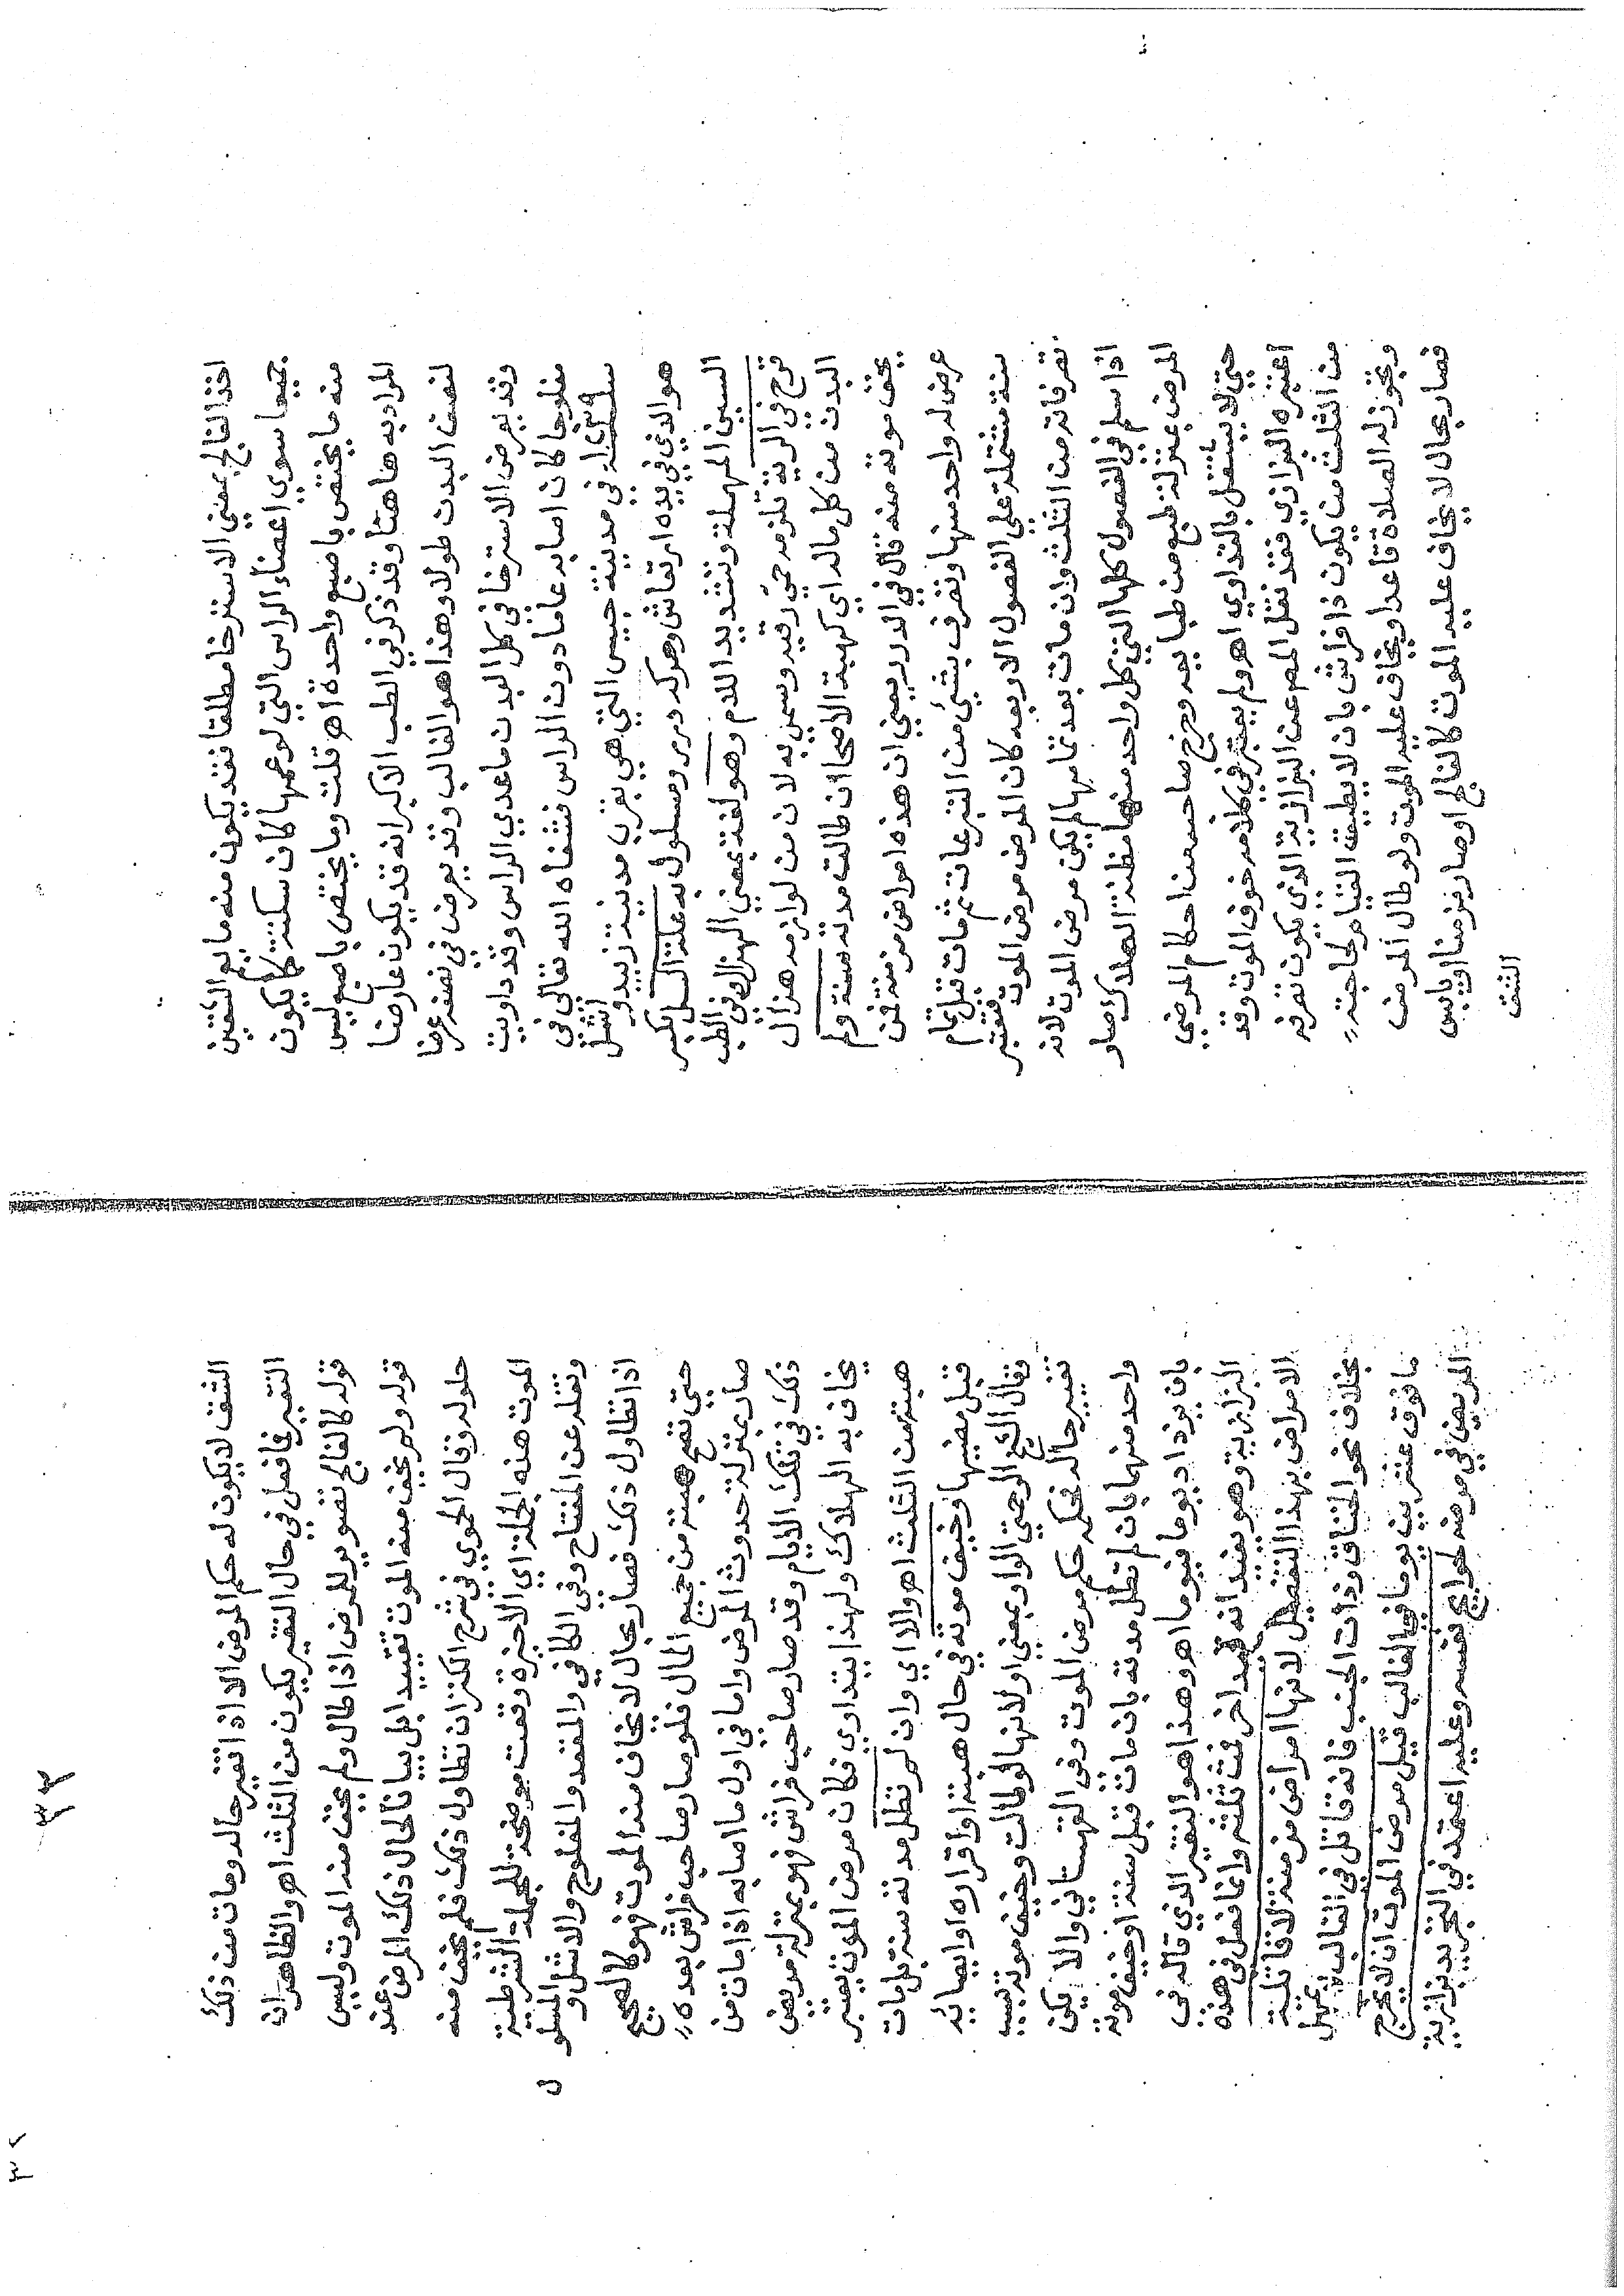 اخذ الفالج بمعني الاسترخا مطلقا فقد يكون منه ما يعم الشقين
جميعا سوي اعضاء الراس التي لو عمها كان سكتة كما يكون
منه ما يختص باصبع واحدة اهـ قلت وما يختص باصبع ليس
المراد به هاهنا وقد ذكر في الطب الاكبر انه قد يكون عارضا
لنصف البدن طولا وهذا هو الغالب وقد يعرض في نصفه عرضا
وقد يعرض الاسترخا في كل البدن ما عدي الراس وقد داويت
مفلوجا كان اصابه عاما دون الراس فشفاه الله تعالي في
سلسلة في مدينة حبيس التي هي بقرب مدينة زبيد واشل
هو الذي في يده ارتعاش وحركه ومسلول به علة السل بكسر
السين المهملة وتشديد اللام وهو لغة بمعني الهزال وفي الطب
قرح في الرية تلزمه حمي دقيه وسمي به لان من لوازمه هزال
البدن من كل ماله اي كهبة الاصحا ان طالت مدته سنة ولم
يخف موته منه قال في الدرر يعني ان هذه امراض مزمنة فمن
عرض له واحد منها وتصرف بشئ من التبرعات ثم مات قبل تمام
سنة مشتملة علي الفصول الاربعه كان المرض مرض الموت فتعتبر
تصرفاته من الثلث وان مات بعد تمامها لم يكن مرض الموت لانه
اذا سلم في الفصول كلها التي كل واحد منها مظنة الهلاك صار
المرض بمنزلة طبع من طبايعه وخرج صاحبه من احكام المرضي
حتي لا يشتغل بالتداوي اهـ ولم يعتبر في كلامه خوف الموت وقد
اعتبره البزازي فقد نقل المص عن البزازية الذي يكون تصرفه
من الثلث من يكون ذا فراش بان لا يطيق القيام لحاجته
وتجوز له الصلاة قاعدا ويخاف عليه الموت ولو طال المرض
فصار بحال لا يخاف عليه الموت كالفالج او صار مزمنا او يابس
الشق
الشق لا يكون له حكم المرض الا اذا تغير حاله ومات من ذلك
التغير فما فعل في حال التغير يكون من الثلث اهـ والظاهر ان
قوله كالفالج تصوير للمرض اذا طال ولم يخف منه الموت وليس
قوله ولم يخف منه الموت تقييدا بل بيانا لحال ذلك المرض عند
حلوله وقال الحموي في شرح الكنز ان تطاول ذلك فلم يخف منه
الموت هذه الجملة اي الاخيرة وقعت موضحة للجملة الشرطية
ونقله عن المفتاح وفي الكافي والمقعد والمفلوج والاشل والمسلول
اذا تطاول ذلك فصار بحال لا يخاف منه الموت فهو كالصحيح
حتي تصح هبته من جميع المال فلو صار صاحب فراش بعده
صار بمنزلة حدوث المرض واما في اول ما اصابه اذا مات من
ذلك في تلك الايام وقد صار صاحب فراش فهو بمنزلة مريض
يخاف به الهلاك ولهذا يتداوي فكان مرض الموت يعتبر
هبته من الثلث اهـ والا اي وان لم تطل مدته سنة بل مات
قبل مضيها وخيف موته في حال هبته او اقراره او ايصائه
فقال الشيخ الرحمتي الواو بمعني او لانها لو طالت وخيف موته بسبب
تغيير حاله فحكمه حكم مرض الموت وفي القهستاني والا يكن
واحد منهما بان لم تطل مدته بان مات قبل سنة او خيف موته
بان يزداد يوما فيوما اهـ وهذا هو التغير الذي قاله في
البزازية وهو يفيد انه قيد اخر فمن ثلثه وانما فصل في هذه
الامراض بهذا التفصيل لانها امراض مزمنة لا قاتلة
بخلاف نحو الخناق وذات الجنب فانه قاتل في الغالب يمهل
ما فوق عشرين يوما في الغالب قيل مرض الموت ان لا يخرج
المريض في مرضه لحوايج نفسه وعليه اعتمد في التجريد بزازية
٣٣
٣٢